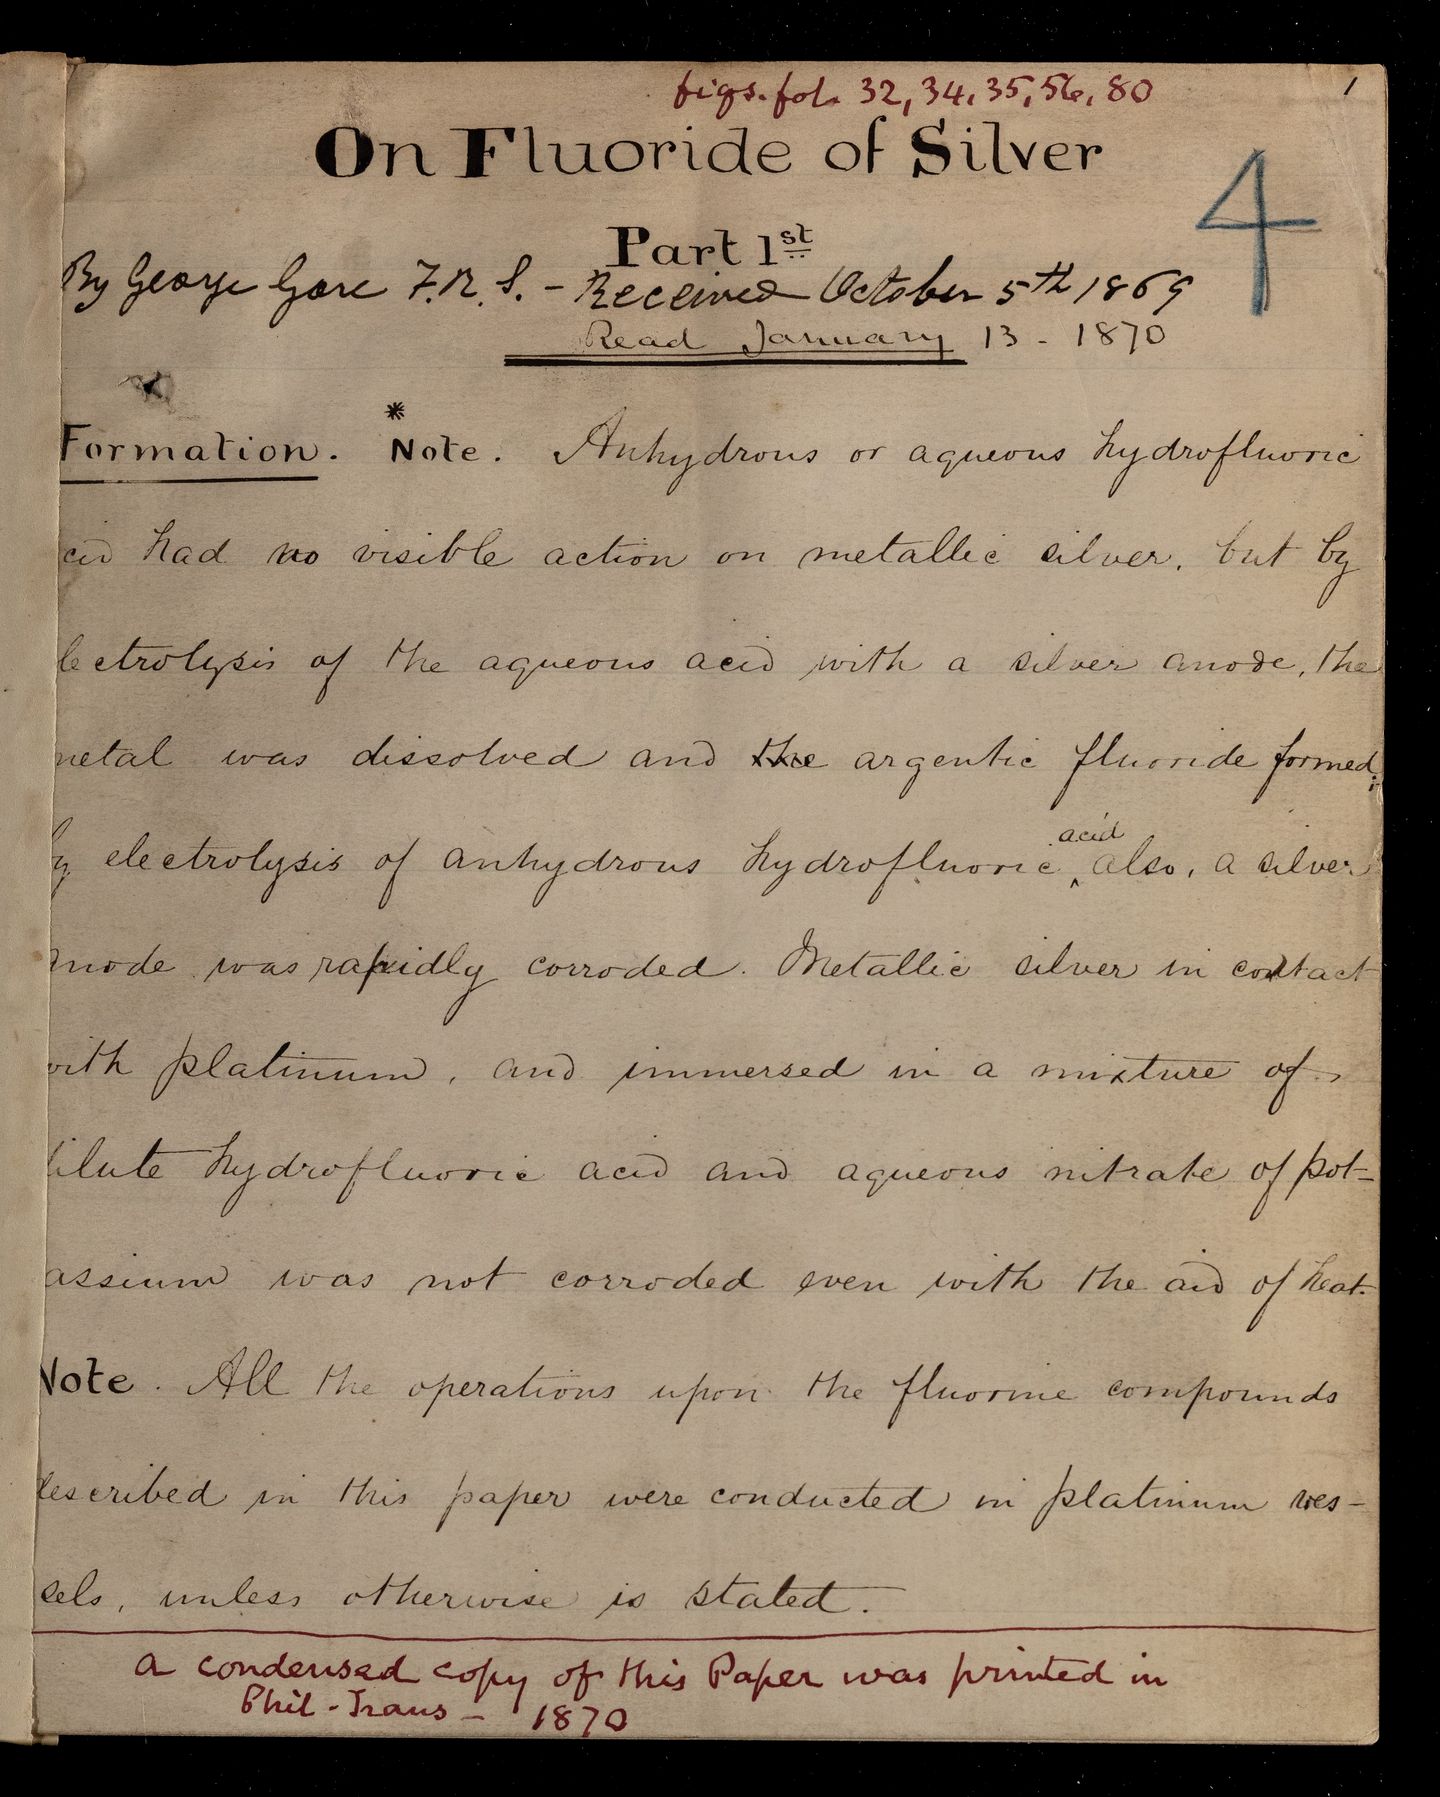 figs. fol. 32, 34, 35, 56, 80
1
On Fluoride of Silver
4
Part 1st
By George Gore F.R.S. - Received October 5th 1869
Read January 13 - 1870
Formation. * Note. Anhydrous or aqueous hydrofluoric
cid had no visible action on metallic silver, but by
lectrolysis of the aqueous acid with a silver anode, the
metal was dissolved and the argentic fluoride formed;
by electrolysis of anhydrous hydrofluoric acid also, a silver
anode was rapidly corroded. Metallic silver in contact
with platinum, and immersed in a mixture of
dilute hydrofluoric acid and aqueous nitrate of pot-
assium was not corroded even with the aid of heat.
Note. All the operations upon the fluorine compounds
described in this paper were conducted in platinum ves-
sels, unless otherwise is stated.
a condensed copy of this Paper was printed in
Phil-Trans - 1870